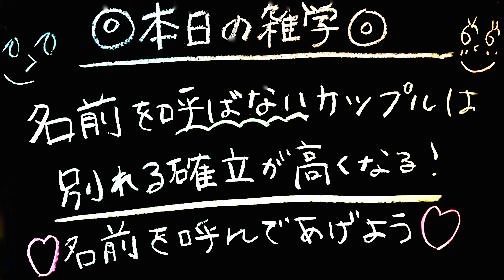 ◎本日の雑学◎
名前を呼ばないカップルは
別れる確立が高くなる!
♡名前を呼んであげよう♡